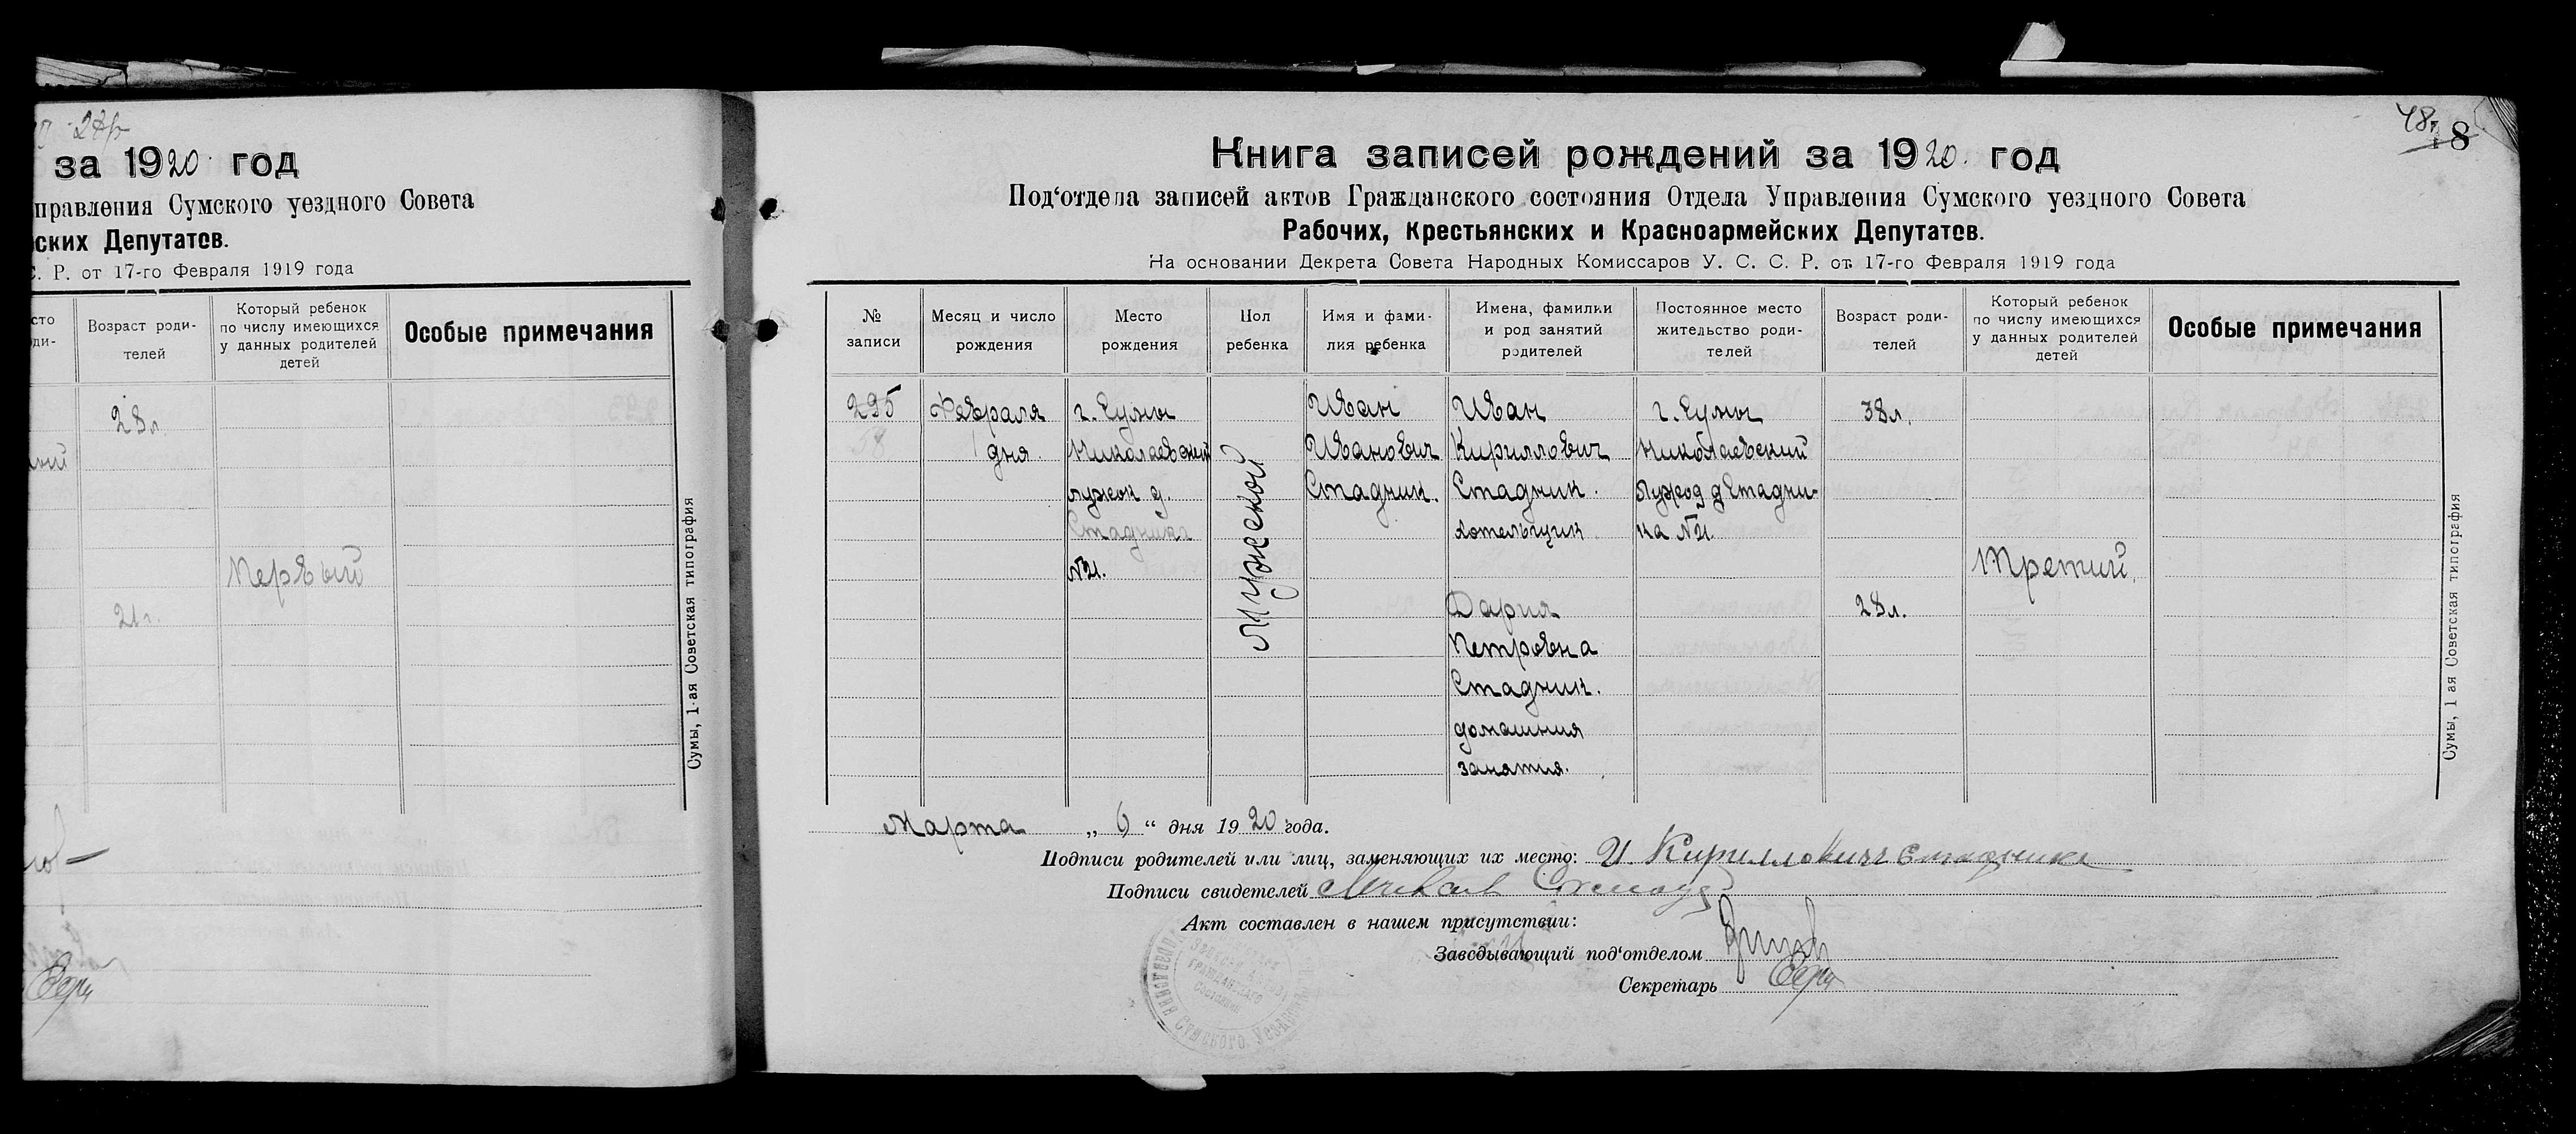 27
за 1920 год
правления Сумского уездного Совета
ских Депутатов.
С. Р. от 17-го Февраля 1919 года
сто
ди-
Возраст роди-
телей
Который ребенок
по числу имеющихся
у данных родителей
детей
Особые примечания
28 л.
Первый
21 г.
Сумы, 1-ая Советская типография
48.
8
Книга записей рождений за 1920. год
Под‘отдела записей актов Гражданского состояния Отдела Управления Сумского уездного Совета
Рабочих, Крестьянских и Красноармейских Депутатов.
На основании Декрета Совета Народных Комиссаров У. С. С. Р. от 17-го Февраля 1919 года
№
записи
Месяц и число
рождения
Место
рождения
Пол
ребенка
Имя и фами-
лия ребенка
Имена, фамилии
и род занятий
родителей
Постоянное место
жительство роди-
телей
Возраст роди-
телей
Который ребенок
по числу имеющихся
у данных родителей
детей
Особые примечания
295
58
Февраля
1 дня
г. Сумы
Николаевский
лужок д.
Стадника
№21.
Мужской
Иван
Иванович
Стадник.
Иван
Кириллович
Стадник.
котельщик
Дария
Петровна
Стадник.
домашния
занятия.
г. Сумы
Николаевский
д Стадни-
ка №21.
38 л.
28 л.
Третий.
Сумы, 1 ая Советская типография
Марта „ 6 “ дня 1920 года.
Подписи родителей или лиц, заменяющих их место: И. Кириллович Стадника
Подписи свидетелей
Акт составлен в нашем присутствии:
Заведывающий под‘отделом
Секретарь